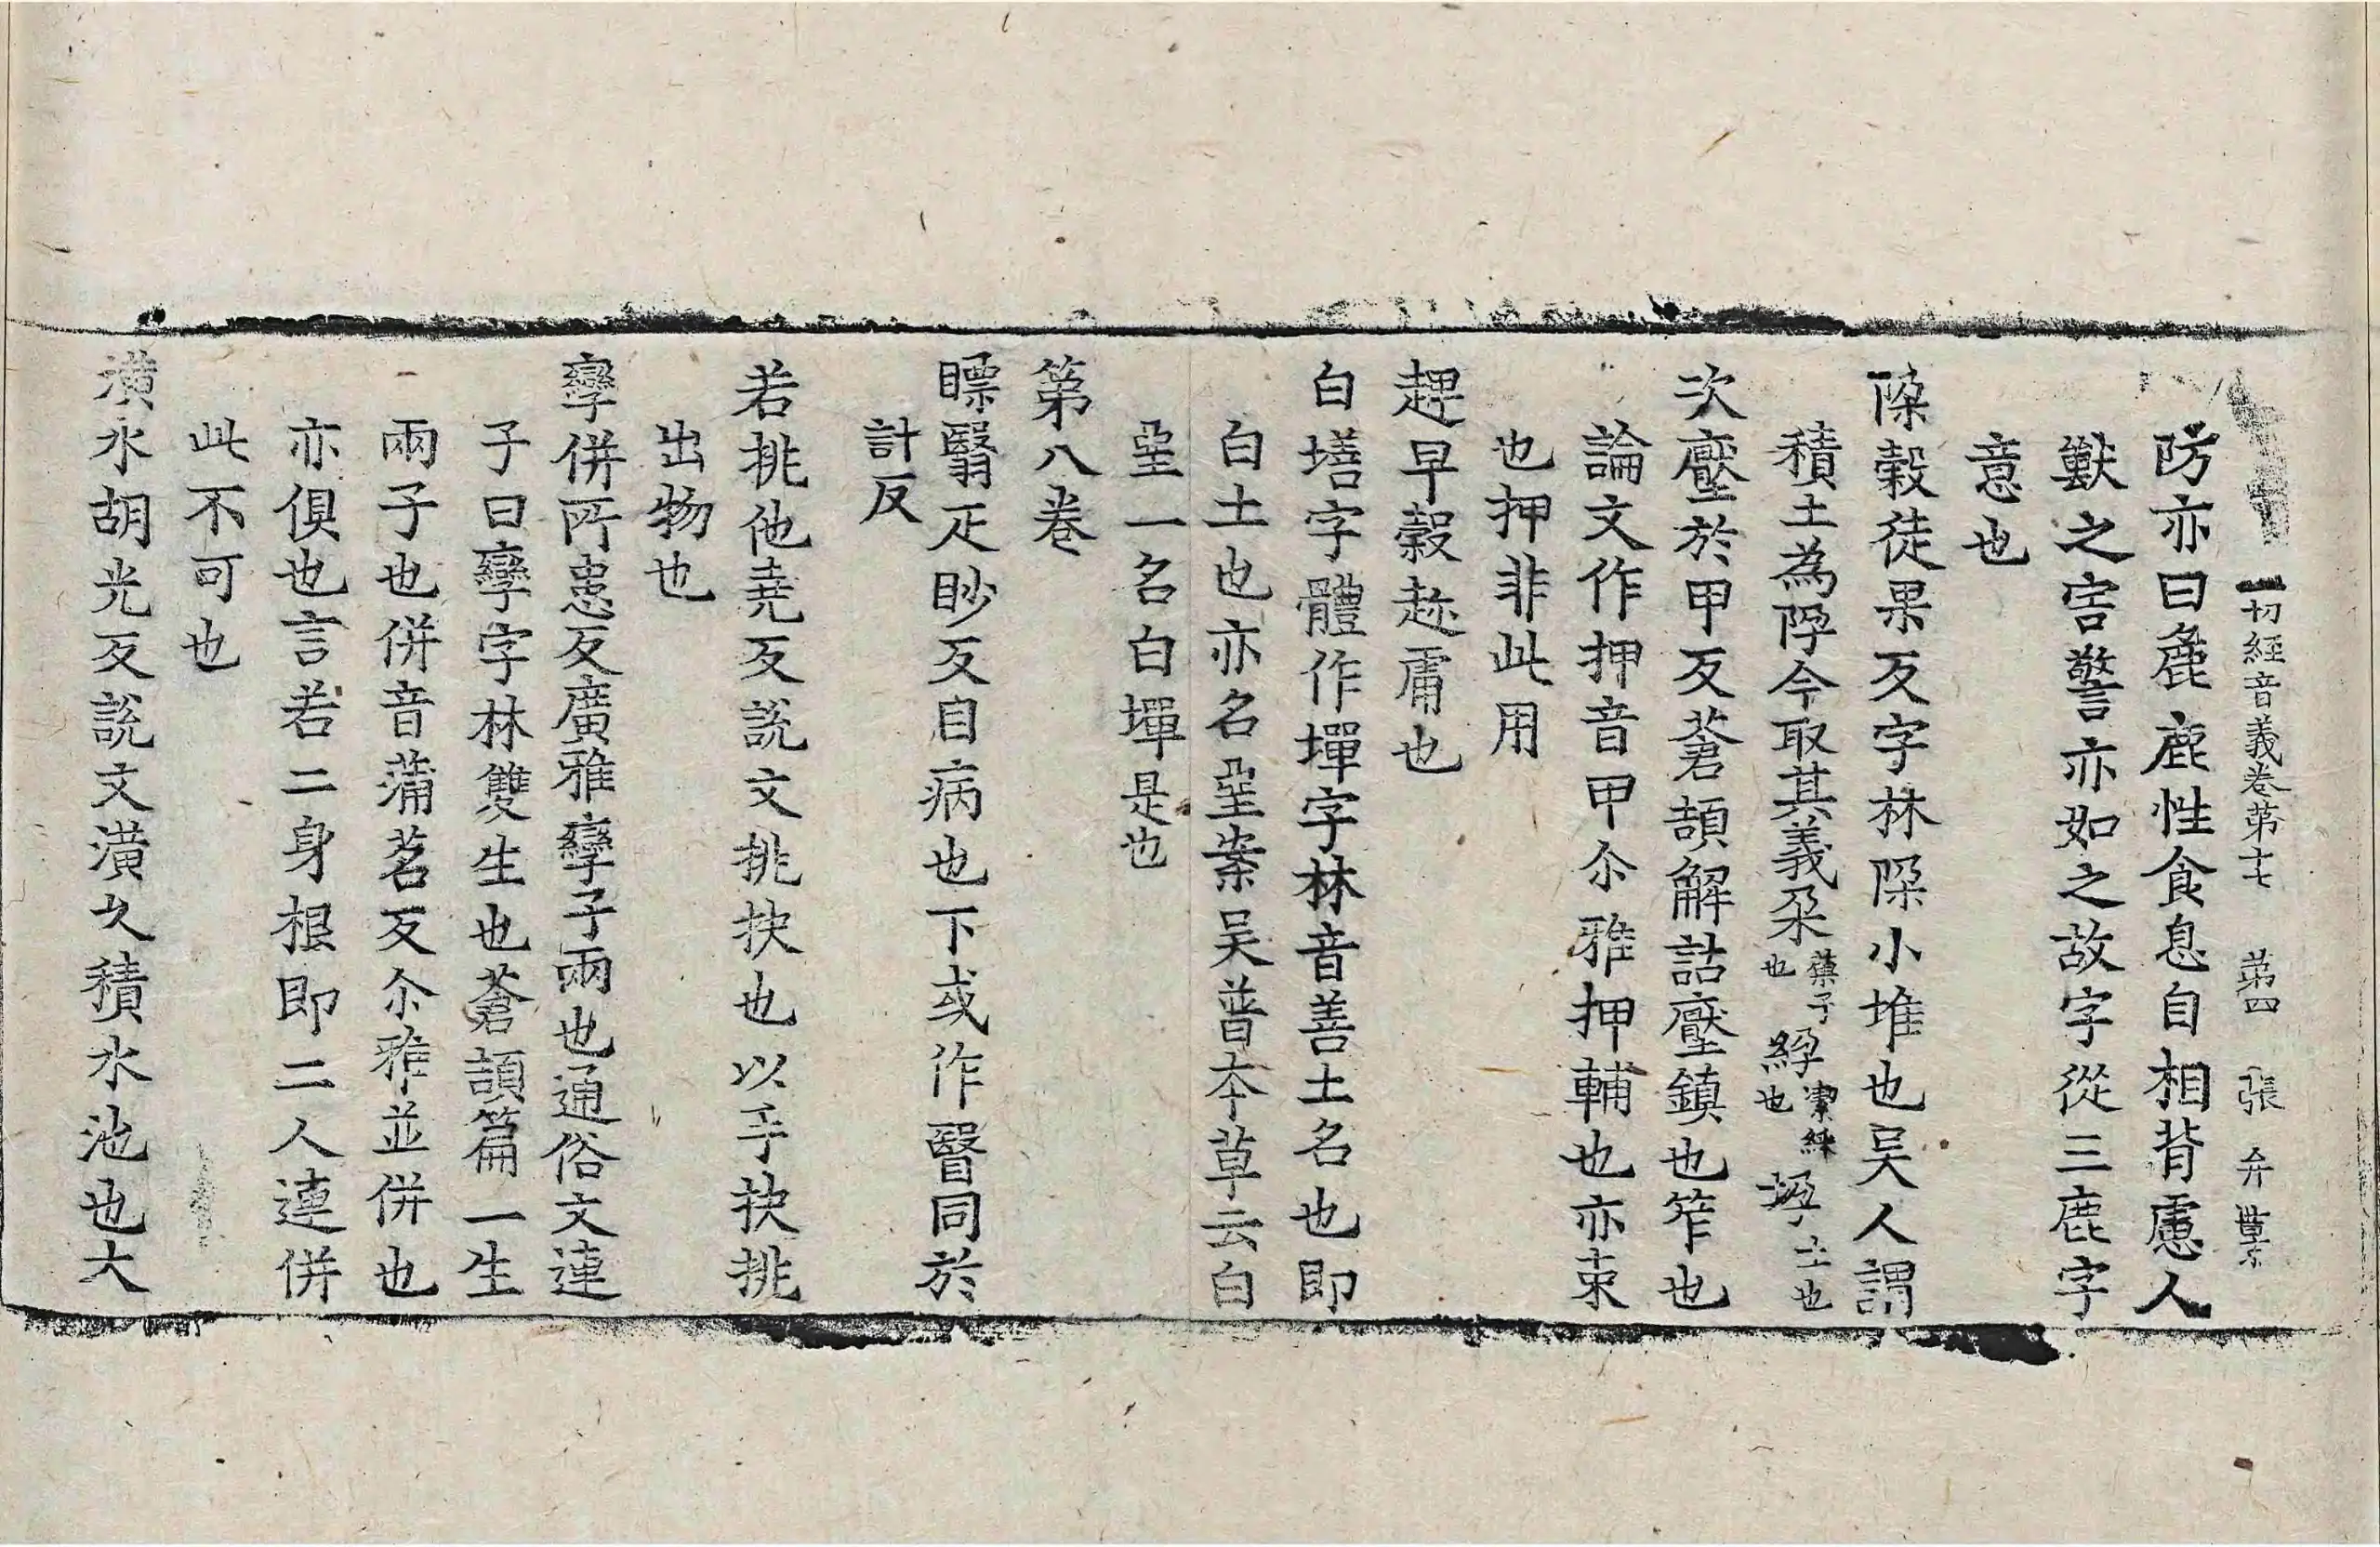 一切經音義卷第十七 第四張 弁 世䒭
防亦曰麁鹿性食息自相背慮人
獸之害警亦如之故字從三鹿字
意也
㙐穀徒果反字林㙐小堆也吴人謂
積土為㙐今取其義朶藥子也繂潔綵也土也
次壓於甲反蒼頡解詁壓鎮也笮也
論文作押音甲尒雅押輔也亦束
也押非此用
趕早穀趂庸也
白墡字體作墠字林音善土名也即
白土也亦名堊案吴普本草云白
堊一名白墠是也
第八卷
瞟翳疋眇反目病也下或作瞖同於
計反
若挑他堯反說文挑抉也以手抉挑
出物也
孿併所患反廣雅孿子兩也通俗文連
子曰孿字林雙生也蒼頡篇一生
兩子也併音蒲茗反尒雅並併也
亦俱也言若二身根即二人連併
此不可也
潢水胡光反說文潢久積水池也大